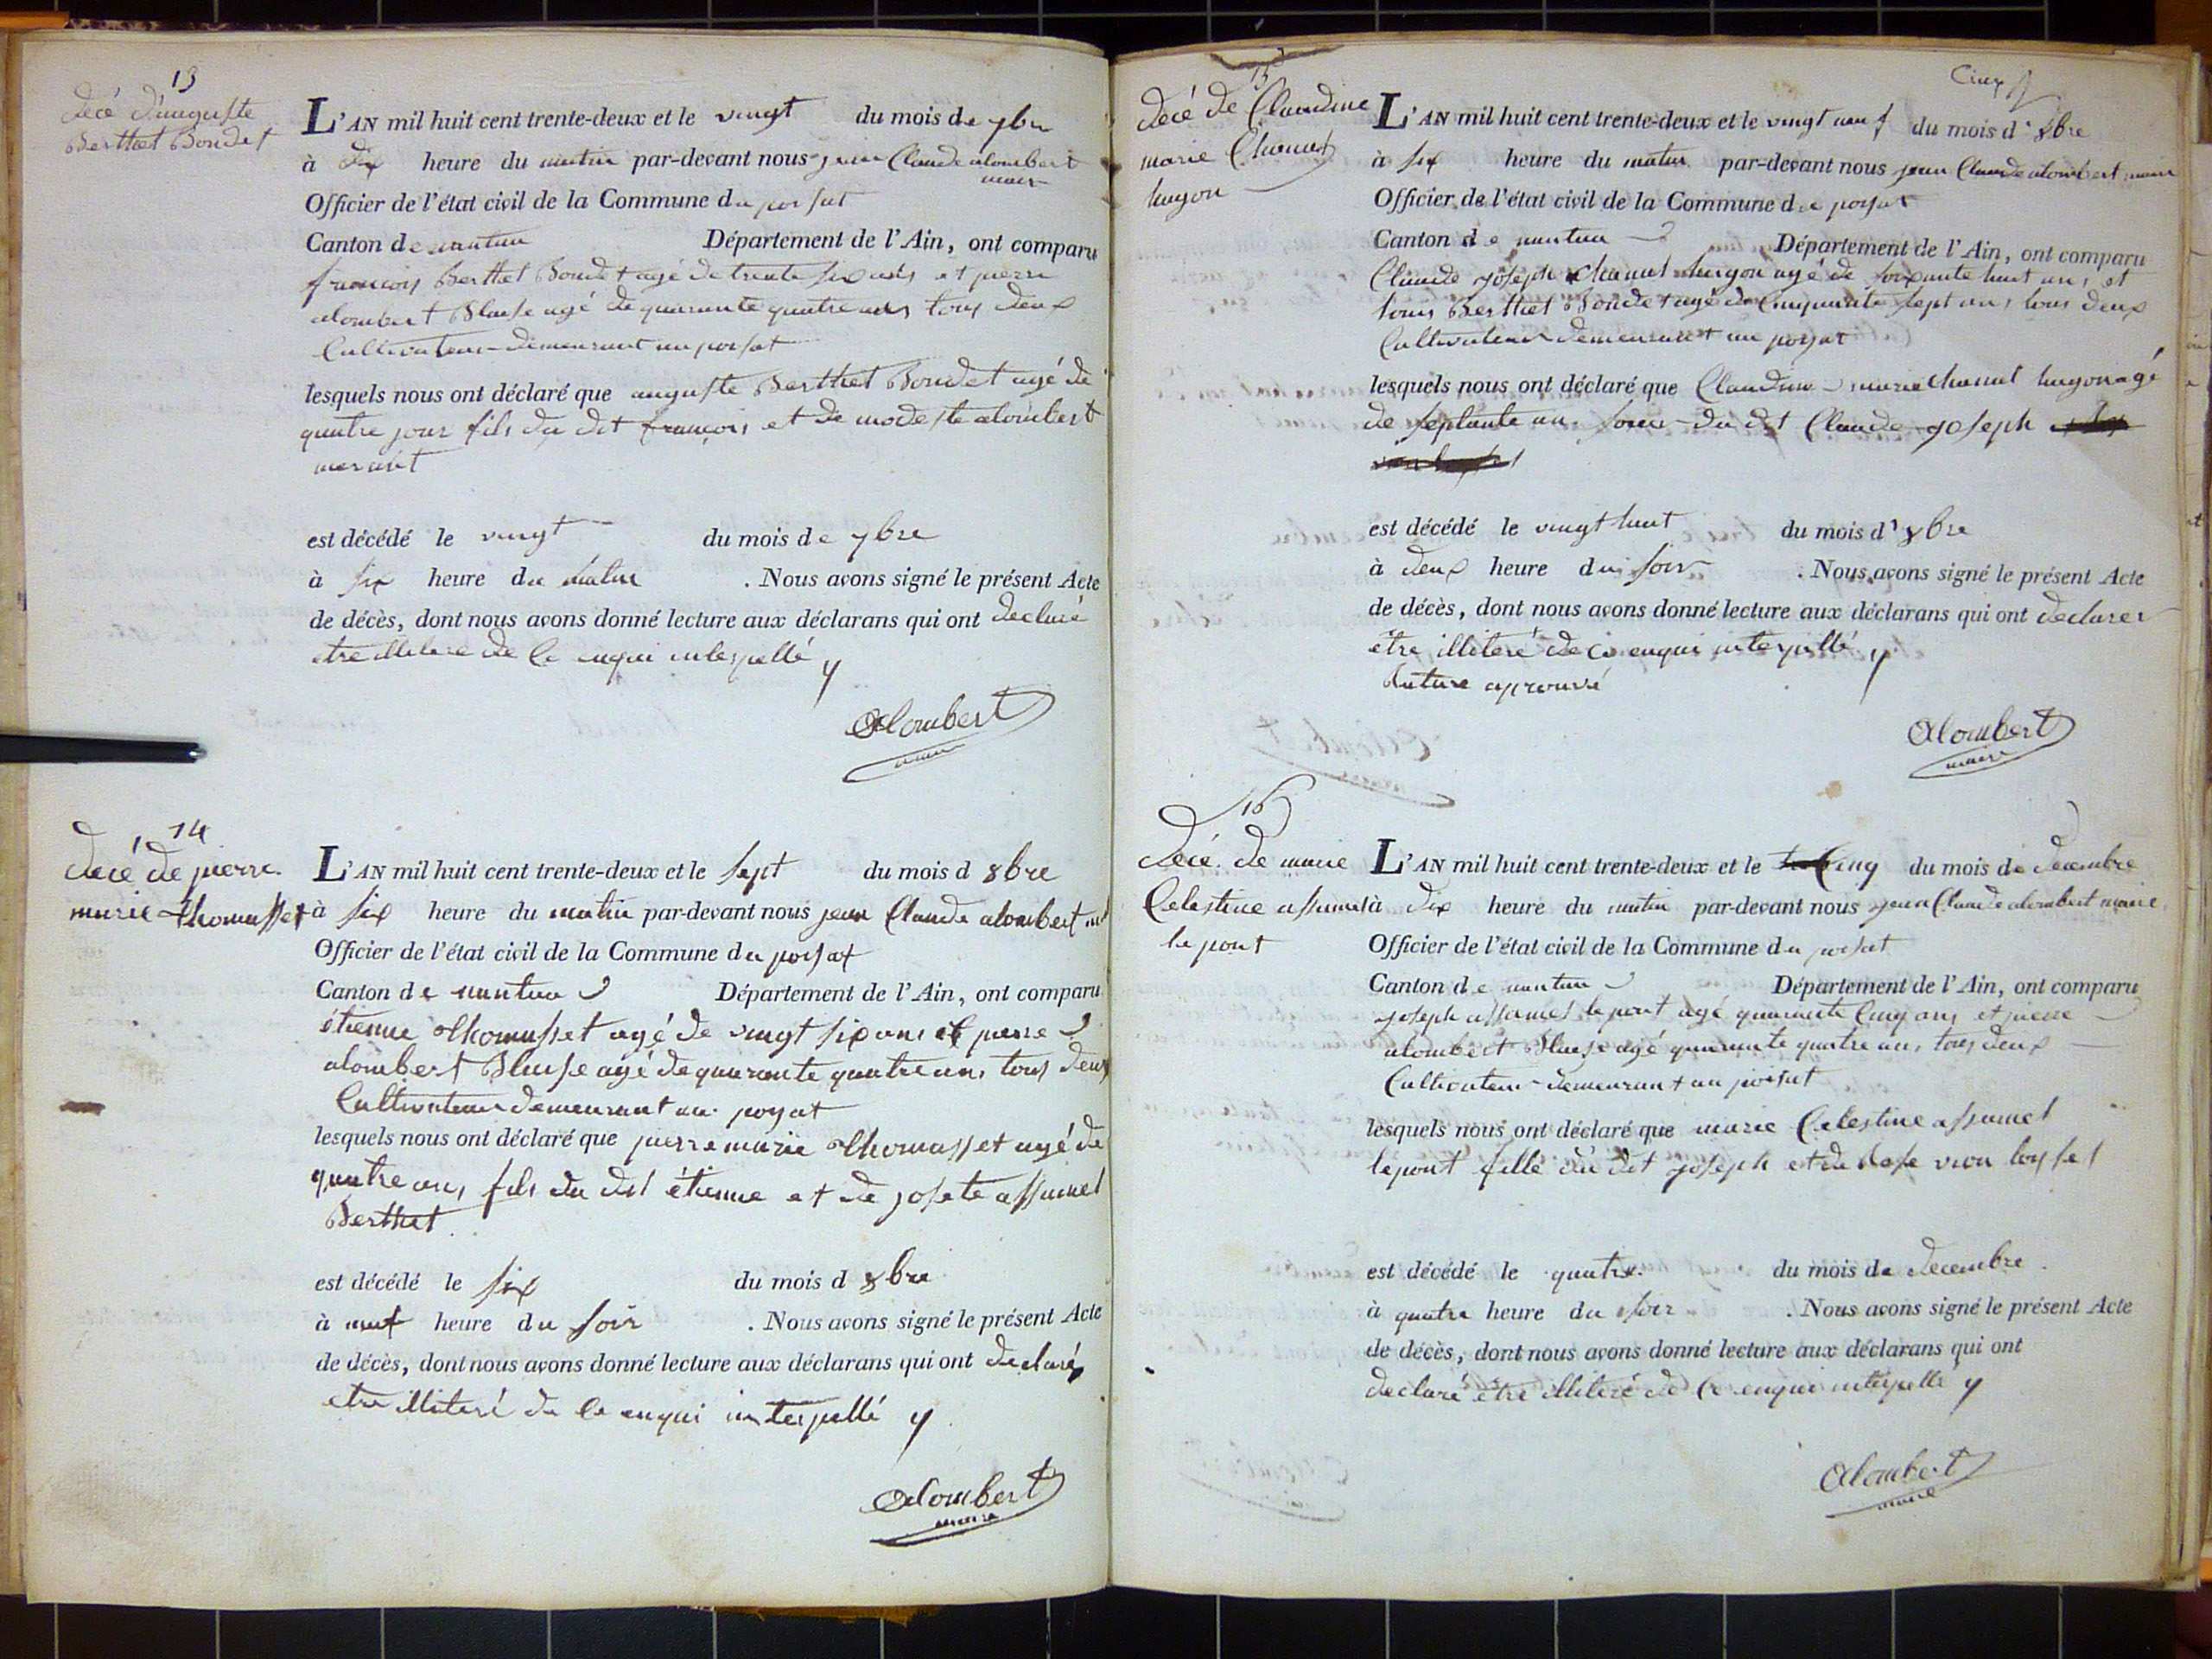 13
decé d'auguste
Berthet Bondet
L'AN mil huit cent trente-deux et le vingt du mois de 7bre
à dix heure du matin par-devant nous jean Claude alombert
maire
Officier de l'état civil de la Commune du poisat
Canton de nantua Département de l'Ain, ont comparu
françois Berthet Bondet agé de trente six ans et pierre
alombert Blaise agé de quarante quatre ans tous deux
Cultivateur demeurant au poisat
lesquels nous ont déclaré que auguste Berthet Bondet agé de
quatre jour fils du dit françois et de modeste alombert
est décédé le vingt du mois de 7bre
à six heure du matin . Nous avons signé le présent Acte
de décès, dont nous avons donné lecture aux déclarans qui ont declaré
etre illiteré de ce enqui interpellé
Alombert
maire
14
decé de pierre
marie thomasset
L'AN mil huit cent trente-deux et le sept du mois d 8bre
à six heure du matin par-devant nous jean Claude alombert
Officier de l'état civil de la Commune du poisat
Canton de nantua Département de l'Ain, ont comparu
étienne thomasset agé de vingt six ans et pierre
alombert Blaise agé de quarante quatre ans tous deux
Cultivateur demeurant au poysat
lesquels nous ont déclaré que pierre marie thomasset agé de
quatre ans fils du dit étienne et de josete assumel
Berthet
est décédé le six du mois d 8bre
à neuf heure du soir . Nous avons signé le présent Acte
de décès, dont nous avons donné lecture aux déclarans qui ont declaré
etre illiteré de ce enqui interpellé
Alombert
maire
Cinq
15
decé de Claudine
marie Chanut
hugon
L'AN mil huit cent trente-deux et le vingt neuf du mois d' 8bre
à six heure du matin par-devant nous jean Claude alombert maire
Officier de l'état civil de la Commune du poysat
Canton de nantua Département de l'Ain, ont comparu
Claude joseph Chanut hugon agé de soixante huit ans et
louis Berthet Bondet agé de Cinquante sept ans tous deux
Cultivateur demeurant au poysat
lesquels nous ont déclaré que Claudine marie chanut hugon agé
de septante an soeur du dit Claude joseph
est décédé le vingt huit du mois d' 8bre
à deux heure du soir . Nous avons signé le présent Acte
de décès, dont nous avons donné lecture aux déclarans qui ont declarer
être illiteré de ce enqui interpellé
Rature aprouvé
Alombert
maire
16
decé de marie
Celestine assumel
lepont
L'AN mil huit cent trente-deux et le Cinq du mois de decembre
à dix heure du matin par-devant nous jean Claude alombert maire
Officier de l'état civil de la Commune du poisat
Canton de nantua Département de l'Ain, ont comparu
joseph assumel lepont agé quarante Cinq ans et pierre
alombert Blaise agé quarante quatre ans tous deux
Cultivateur demeurant au poisat
lesquels nous ont déclaré que marie Celestine assumel
lepont fille du dit joseph et de Rose vion loysel
est décédé le quatre du mois de decembre
à quatre heure du soir . Nous avons signé le présent Acte
de décès, dont nous avons donné lecture aux déclarans qui ont
declaré être illiteré de ce enqui interpellé
Alombert
maire